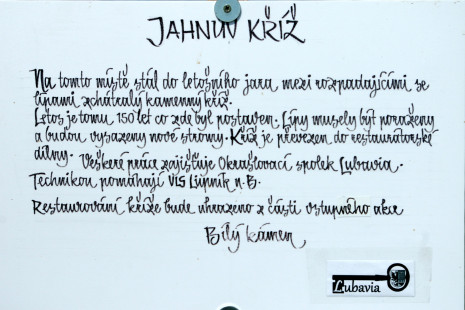 JAHNŮV KŘÍŽ
Na tomto místě stál do letošního jara, mezi rozpadajícími se
lípami zchátralý kamenný kříž.
Letos je tomu 150 let co zde byl postaven. Lípy musely být poraženy
a budou vysazeny nové stromy. Kříž je převezen do restaurátorské
dílny. Veškeré práce zajišťuje Okrašlovací spolek Lubavia.
Technikou pomáhají VLS Lipník n. B.
Restaurování kříže bude uhrazeno z části vstupného akce
Bílý kámen
Lubavia